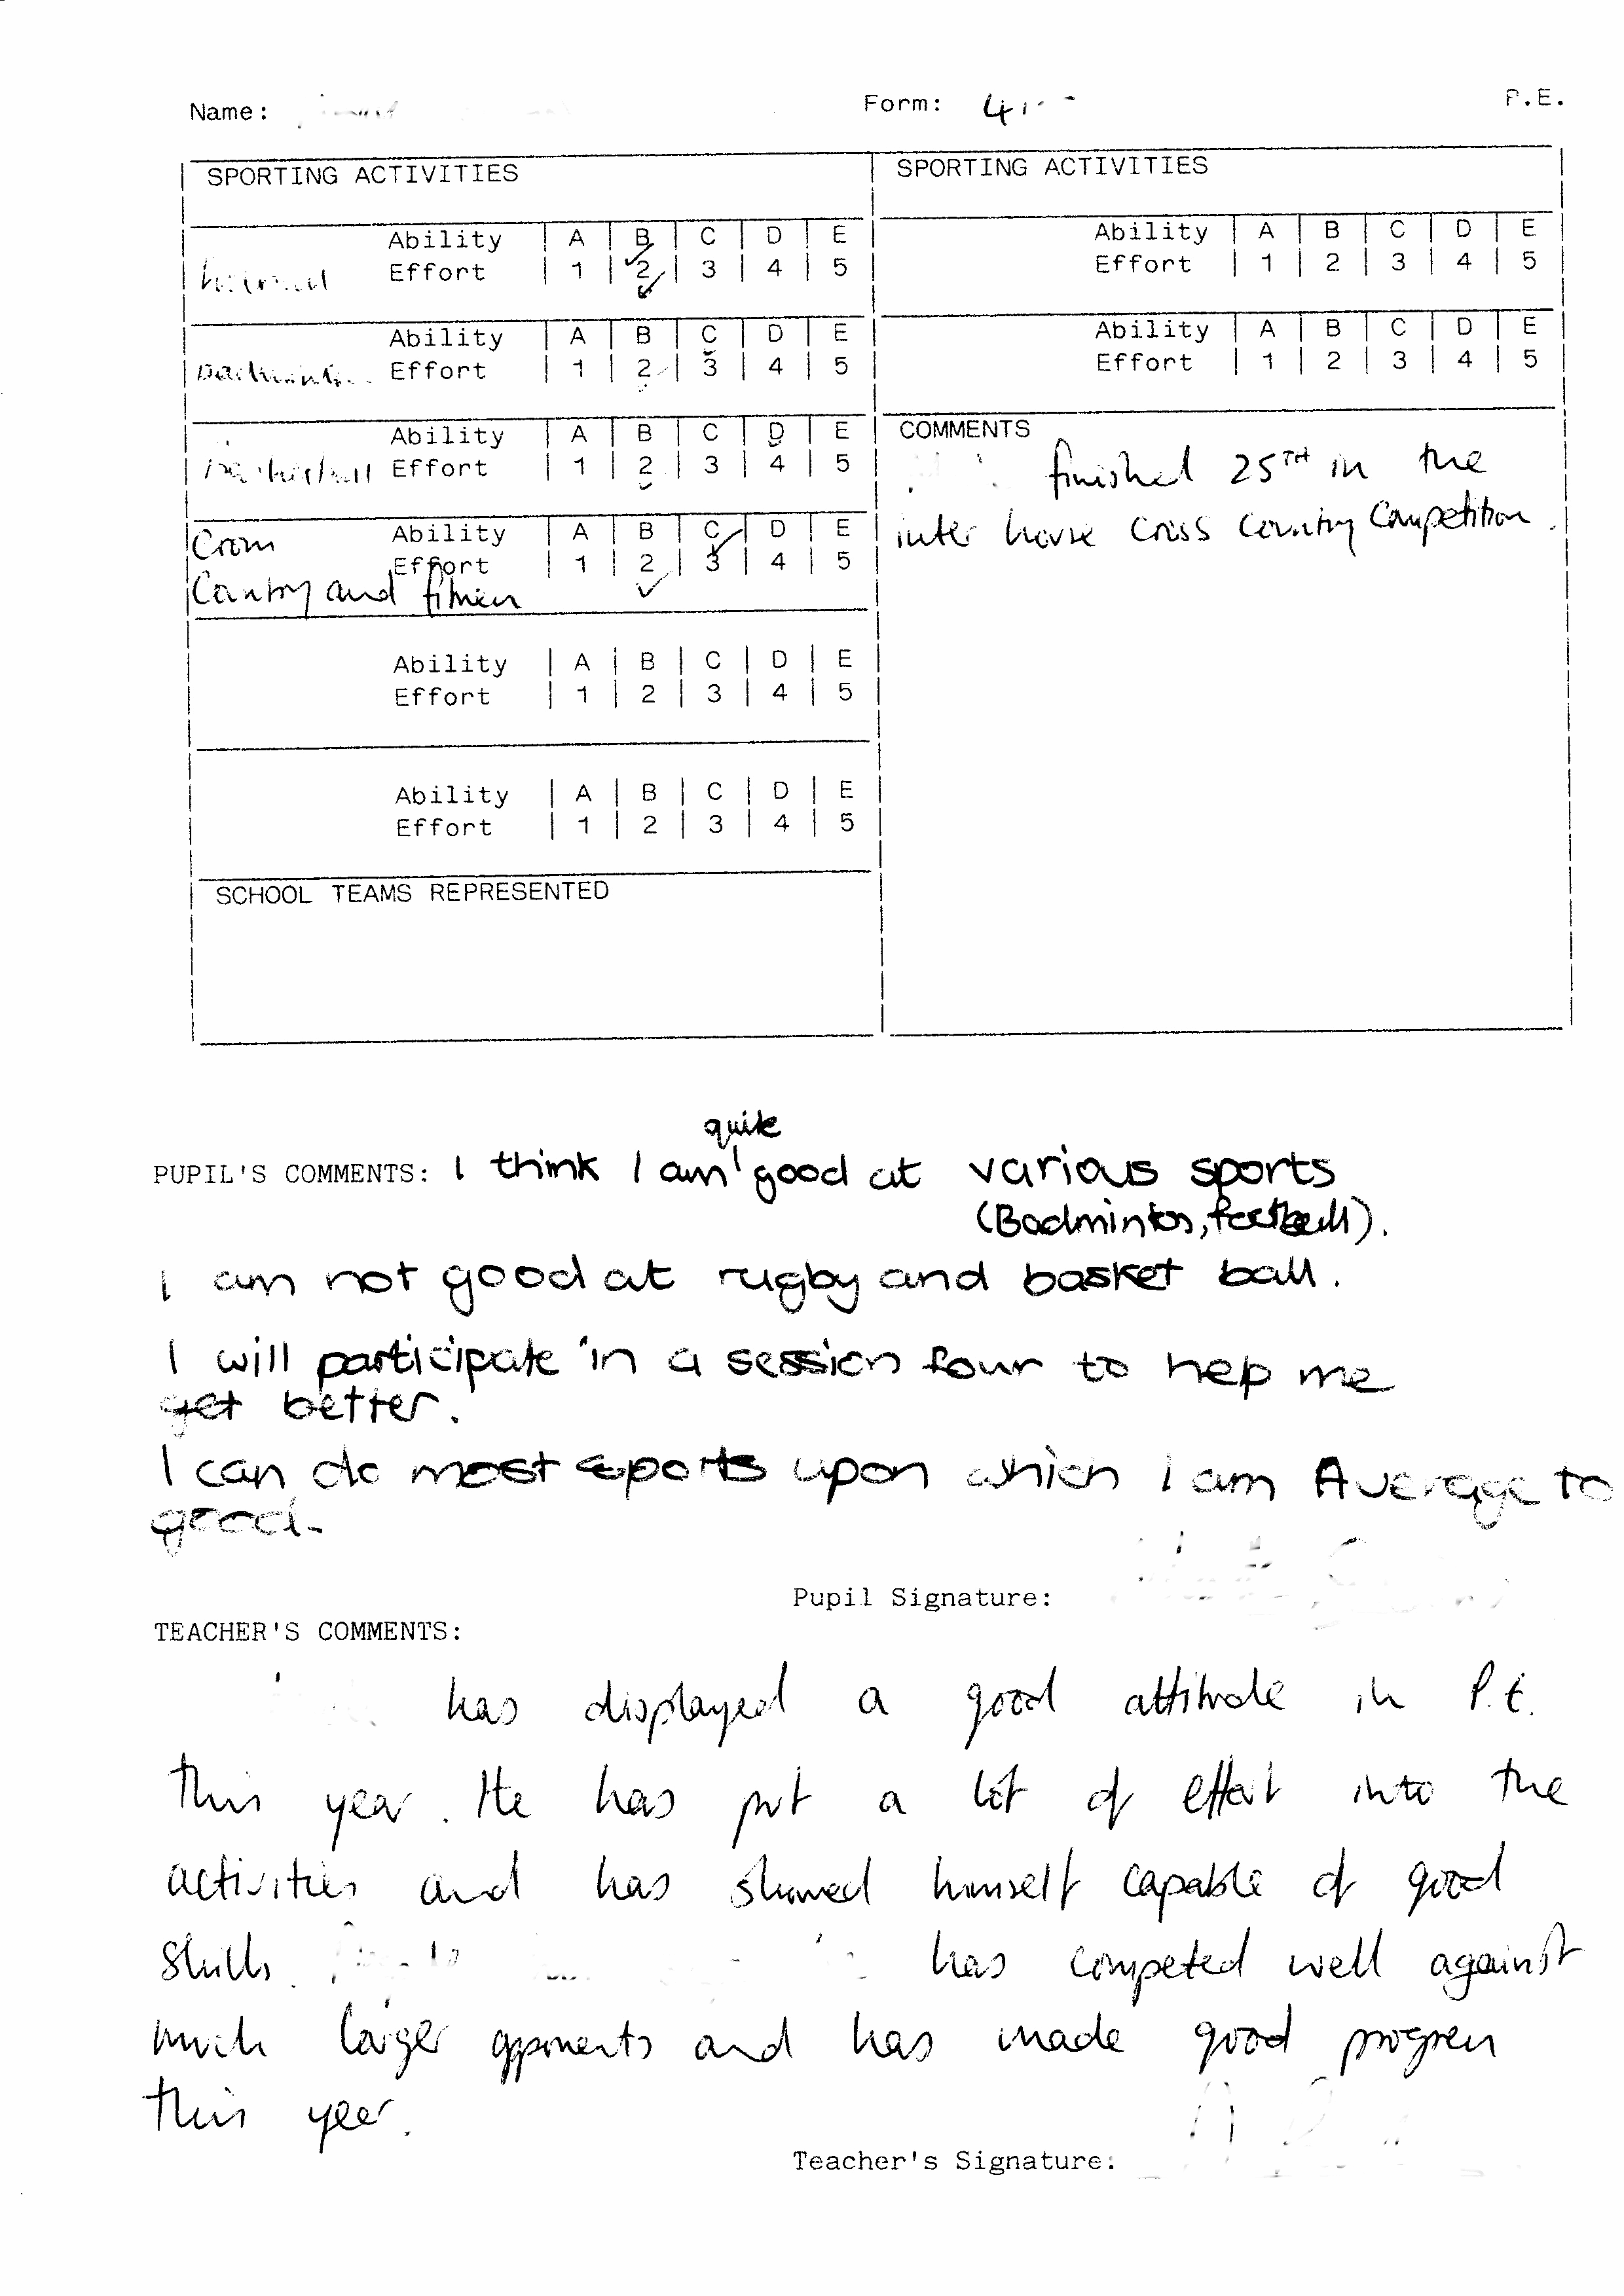 Name: Form: P.E.
SPORTING ACTIVITIES SPORTING ACTIVITIES
Ability A B C D E Ability A B C D E
Effort 1 2 3 4 5 Effort 1 2 3 4 5
Ability A B C D E Ability A B C D E
Effort 1 2 3 4 5 Effort 1 2 3 4 5
Ability A B C D E COMMENTS
Effort 1 2 3 4 5 finished 25TH in the
Cross Ability A B C D E inter house Cross Country Competition.
Effort 1 2 3 4 5
Country and fitness
Ability A B C D E
Effort 1 2 3 4 5
Ability A B C D E
Effort 1 2 3 4 5
SCHOOL TEAMS REPRESENTED
quite
PUPIL'S COMMENTS: I think I am good at various sports
(Badminton, football).
I am not good at rugby and basket ball.
I will participate in a session four to help me
get better.
I can do most sports upon which I am Average to
good.
Pupil Signature:
TEACHER'S COMMENTS:
has displayed a good attitude in P.E.
this year. He has put a lot of effort into the
activities and has showed himself capable of good
skills. has competed well against
much larger opponents and has made good progress
this year.
Teacher's Signature: